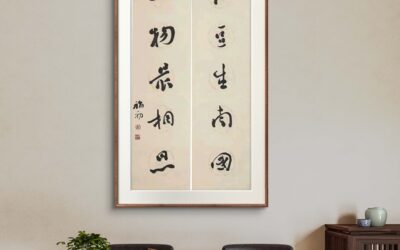 豆生南國
物最相思